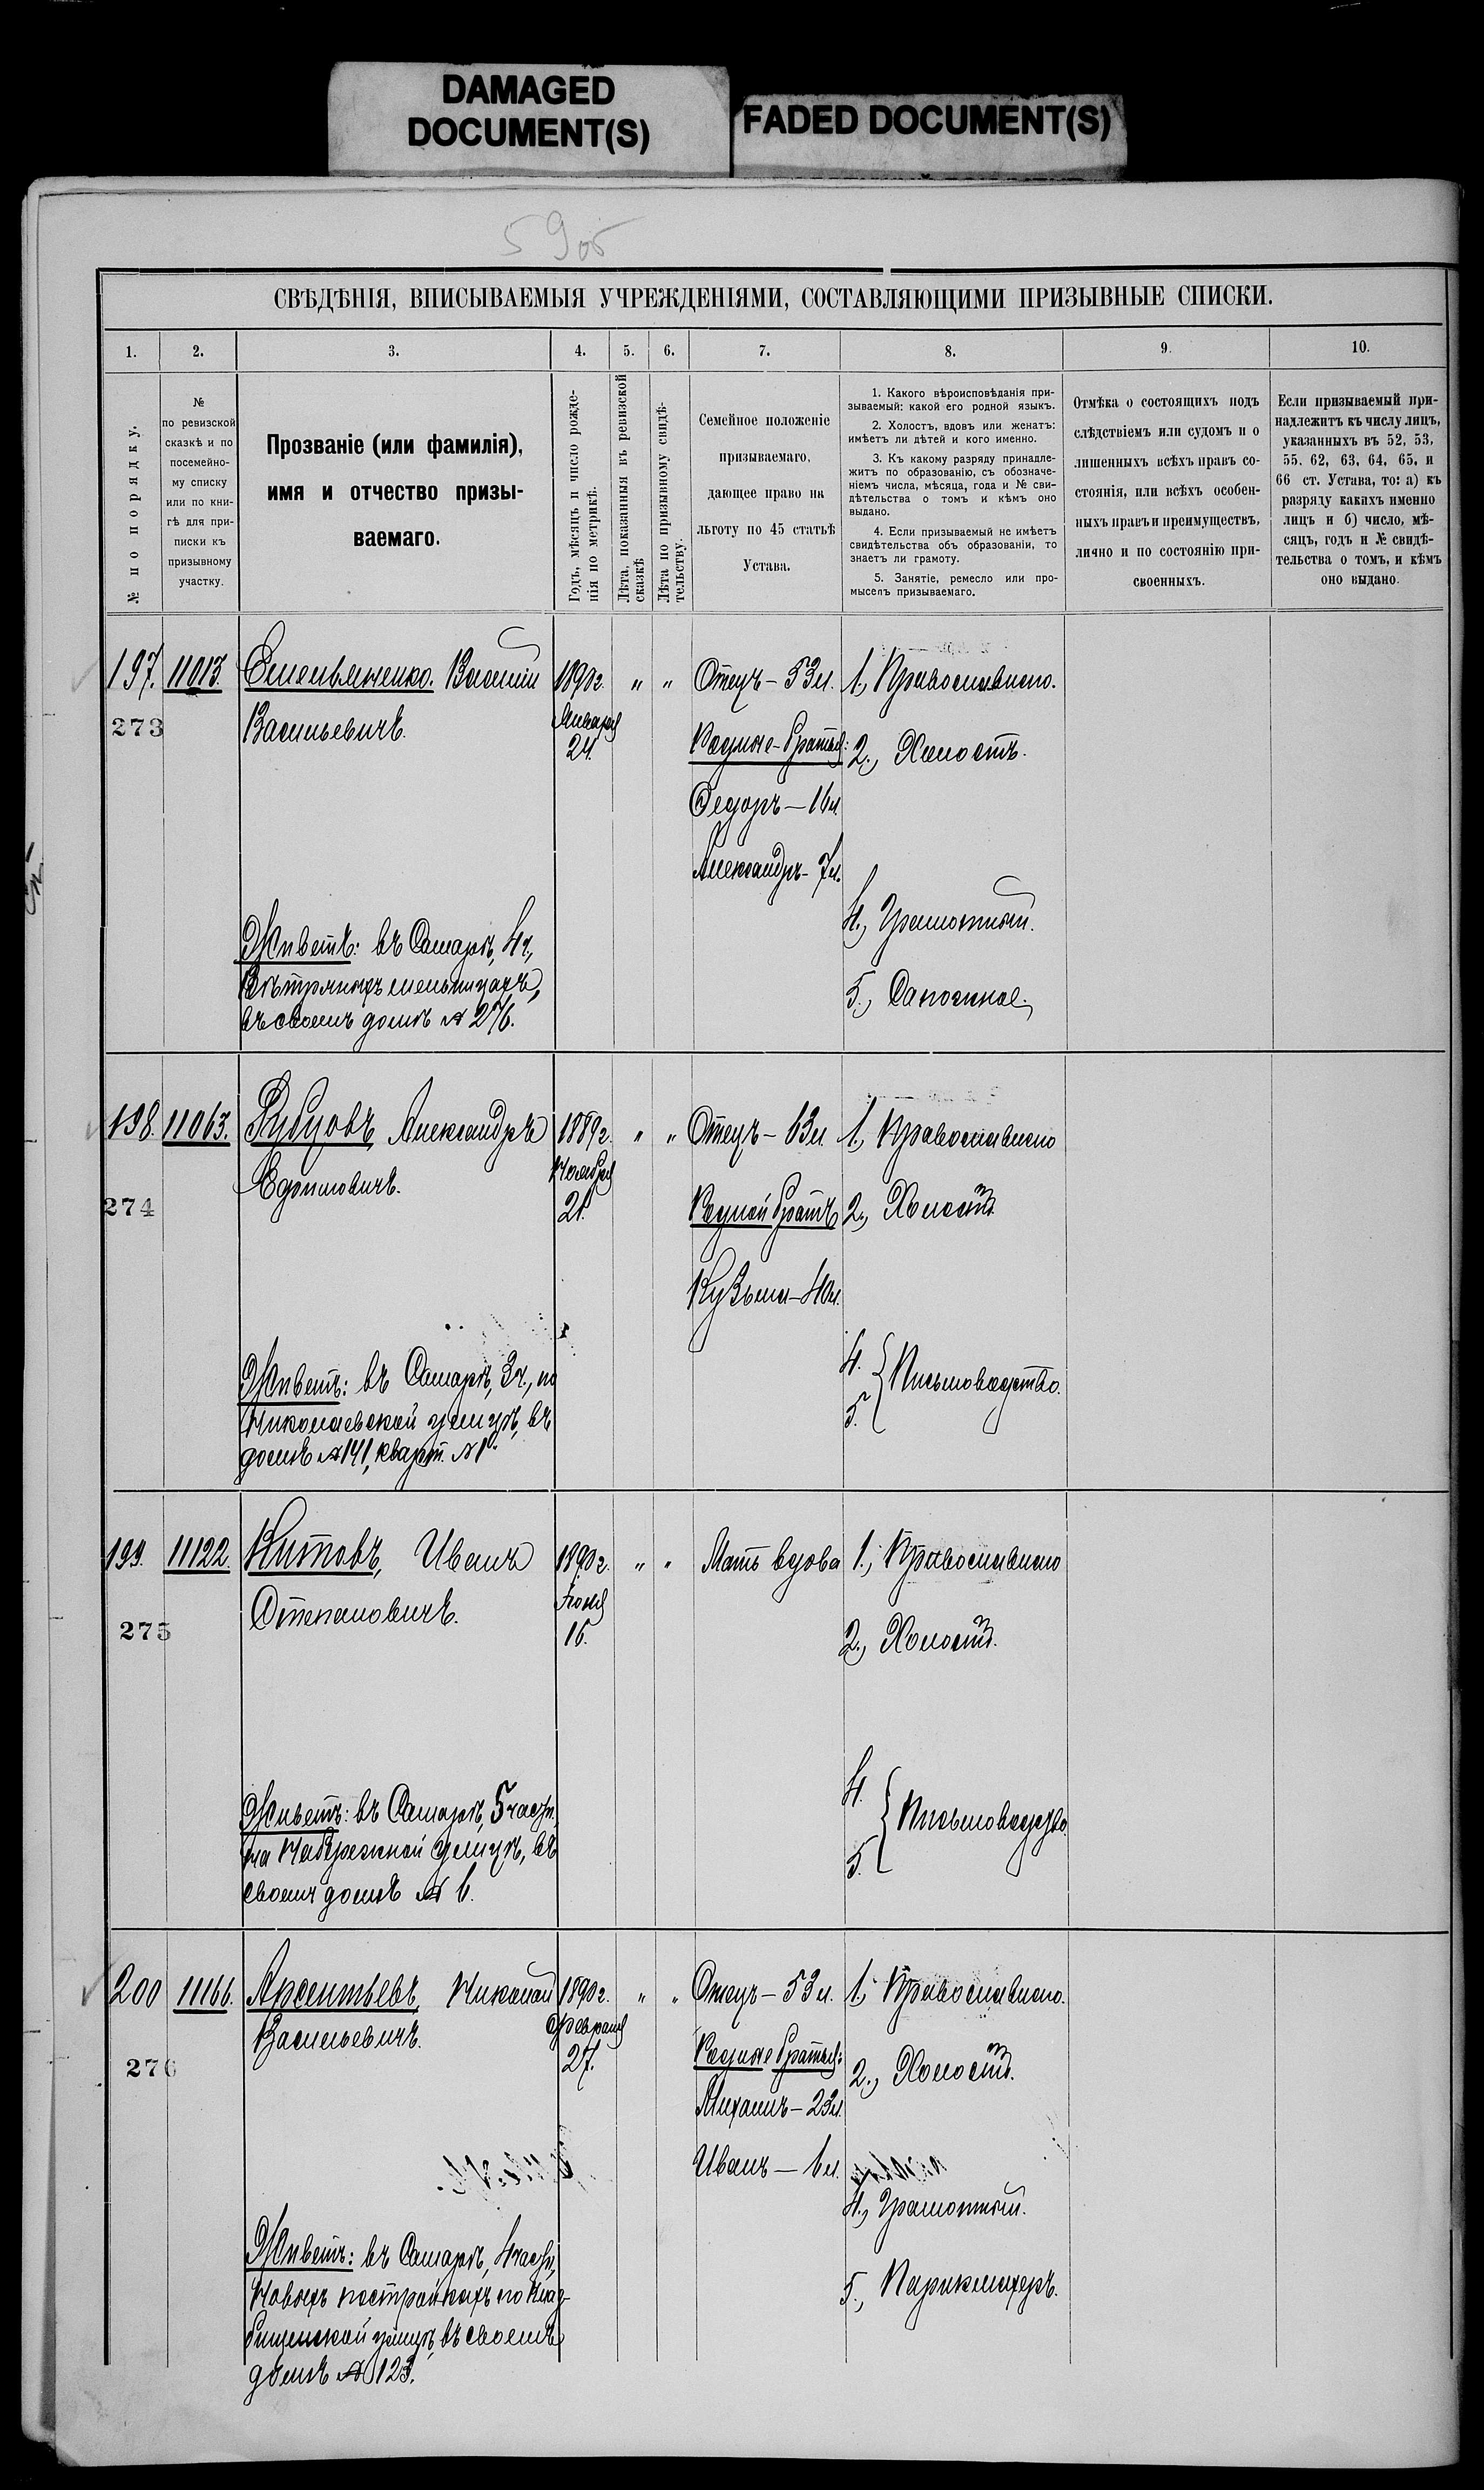 DAMAGED
DOCUMENT(S)
FADED DOCUMENT(S)
5905
СВѢДѢНІЯ, ВПИСЫВАЕМЫЯ УЧРЕЖДЕНІЯМИ, СОСТАВЛЯЮЩИМИ ПРИЗЫВНЫЕ СПИСКИ.
1.
2.
3.
4.
5.
6.
7.
8.
9.
10.
№ по порядку.
№
по ревизской
сказкѣ и по
посемейно-
му списку
или по кни-
гѣ для при-
писки къ
призывному
участку.
Прозваніе (или фамилія),
имя и отчество призы-
ваемаго.
Годъ, мѣсяцъ и число рожде-
нія по метрикѣ.
Лѣта, показанныя въ ревизской
сказкѣ
Лѣта по призывному свидѣ-
тельству.
Семейное положеніе
призываемаго,
дающее право на
льготу по 45 статьѣ
Устава.
1. Какого вѣроисповѣданія при-
зываемый: какой его родной языкъ.
2. Холостъ, вдовъ или женатъ:
имѣетъ ли дѣтей и кого именно.
3. Къ какому разряду принадле-
житъ по образованію, съ обозначе-
ніемъ числа, мѣсяца, года и № сви-
дѣтельства о томъ и кѣмъ оно
выдано.
4. Если призываемый не имѣетъ
свидѣтельства объ образованіи, то
знаетъ ли грамоту.
5. Занятіе, ремесло или про-
мыселъ призываемаго.
Отмѣка о состоящихъ подъ
слѣдствіемъ или судомъ и о
лишенныхъ всѣхъ правъ со-
стоянія, или всѣхъ особен-
ныхъ правъ и преимуществъ,
лично и по состоянію при-
своенныхъ.
Если призываемый при-
надлежитъ къ числу лицъ,
указанныхъ въ 52, 53,
55, 62, 63, 64, 65, и
66 ст. Устава, то: а) къ
разряду какихъ именно
лицъ и б) число, мѣ-
сяцъ, годъ и № свидѣ-
тельства о томъ, и кѣмъ
оно выдано.
197. 11013. Емельяненко. Василій 1890г. " " Отецъ – 53л. 1., Православнаго.
273 Васильевичъ. Января
24.
Родные-братья: 2., Холостъ.
Федоръ – 16л.
Александръ – 7л.
4., Грамотный.
Живетъ: въ Самарѣ, 4ч.,
Вѣтряныхъ мельницахъ,
въ своемъ домѣ № 276.
5., Сапожное.
198. 11063. Рубцовъ, Александръ 1889г. " " Отецъ – 63л. 1., Православнаго
Ефимовичъ. Ноября
274 21.
Родной братъ 2., Холостъ.
Кузьма – 40л.
Живетъ: въ Самарѣ, 3ч., по
Николаевской улицѣ, въ
домѣ № 141, кварт. № 1й.
4.
5. Письмоводство.
199. 11122. Китовъ, Иванъ 1890г. " " Мать вдова 1., Православнаго
275 Степановичъ. Іюня
16.
2., Холостъ.
Живетъ: въ Самарѣ, 5 части,
на Набережной улицѣ, въ
своемъ домѣ № 6.
4.
5. Письмоводство.
200 11166. Арсентьевъ, Николай 1890г. " " Отецъ – 53л. 1., Православнаго.
Васильевичъ. Февраля
276 27.
Родные братья: 2., Холостъ.
Михаилъ – 23л.
Иванъ – 6л.
4., Грамотный.
Живетъ: въ Самарѣ, 4 части,
Новыхъ постройкахъ по Клад-
бищенской улицѣ, въ своемъ
домѣ № 123.
5., Парикмахеръ.